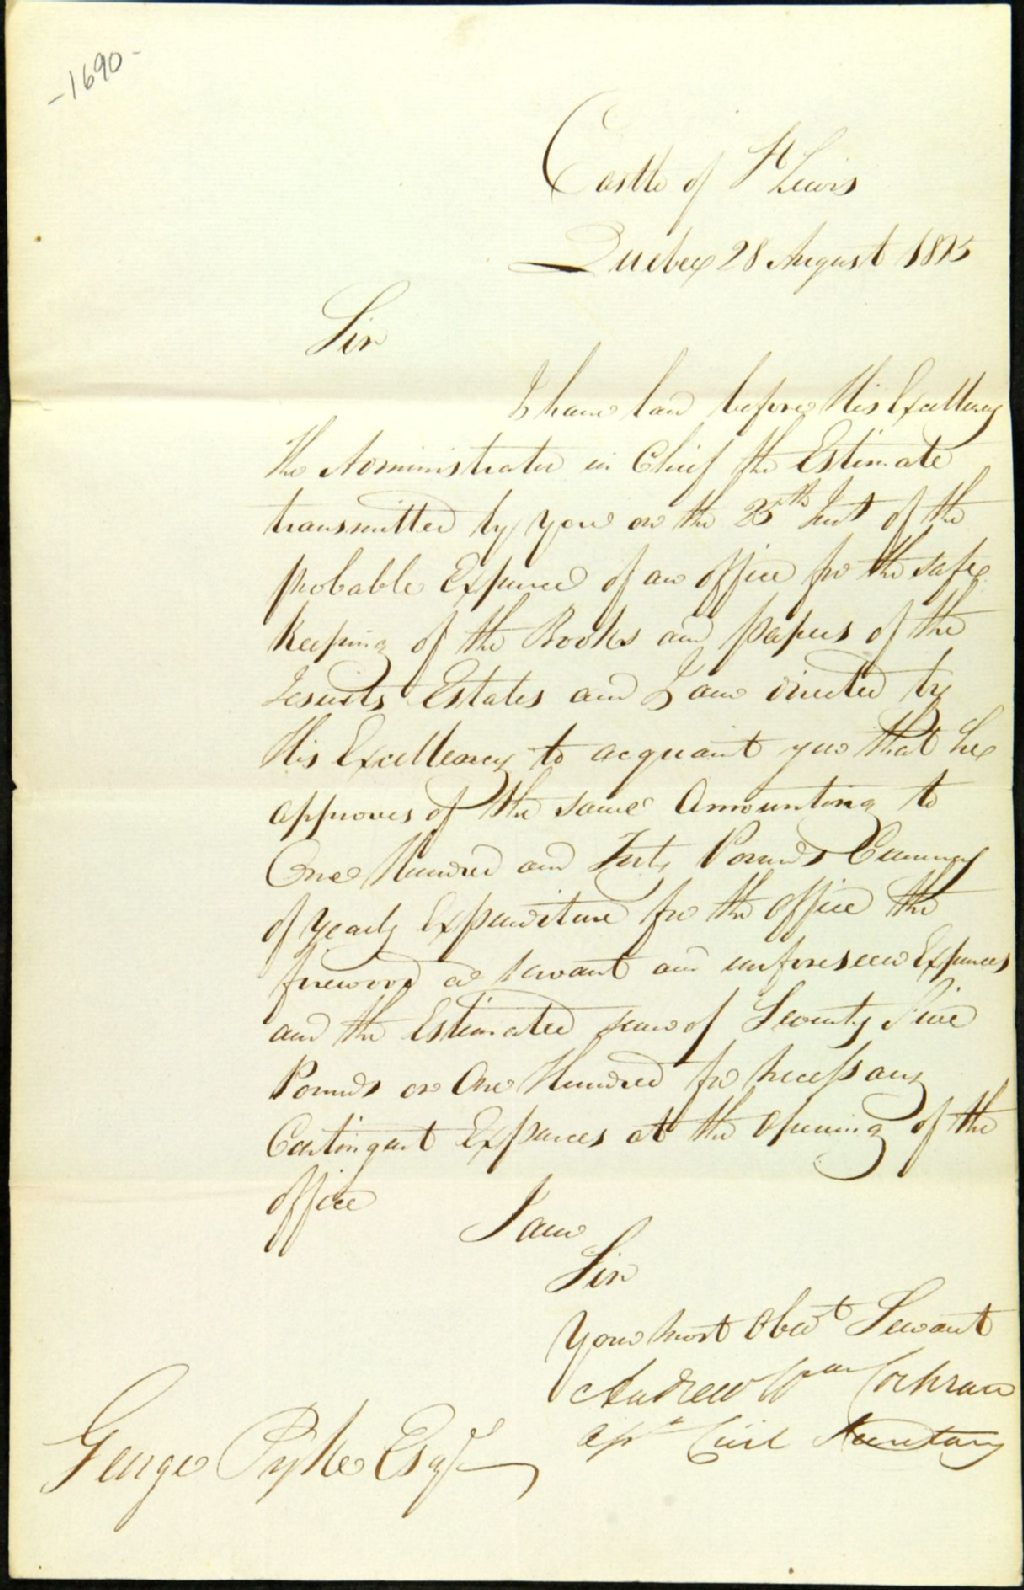 -1690-
Castle of St Lewis
Quebec 28 August 1815
Sir
I have laid before His Excellency
the Administrator in Chief the Estimate
transmitted by you on the 25th Inst of the
probable Expence of an office for the safe
keeping of the Books and papers of the
Jesuits Estates and I am directed by
His Excellency to acquaint you that he
approves of the same Amounting to
One Hundred and Forty Pounds Currency
of yearly Expenditure for the office the
firewood a servant and unforeseen Expences
and the Estimated sum of Seventy Five
Pounds or One Hundred for necessary
Contingent Expences at the opening of the
office
I am
Sir
Your most Obedt Servant
Andrew Wm Cochran
Asst Civil Secretary
George Pyke Esqr